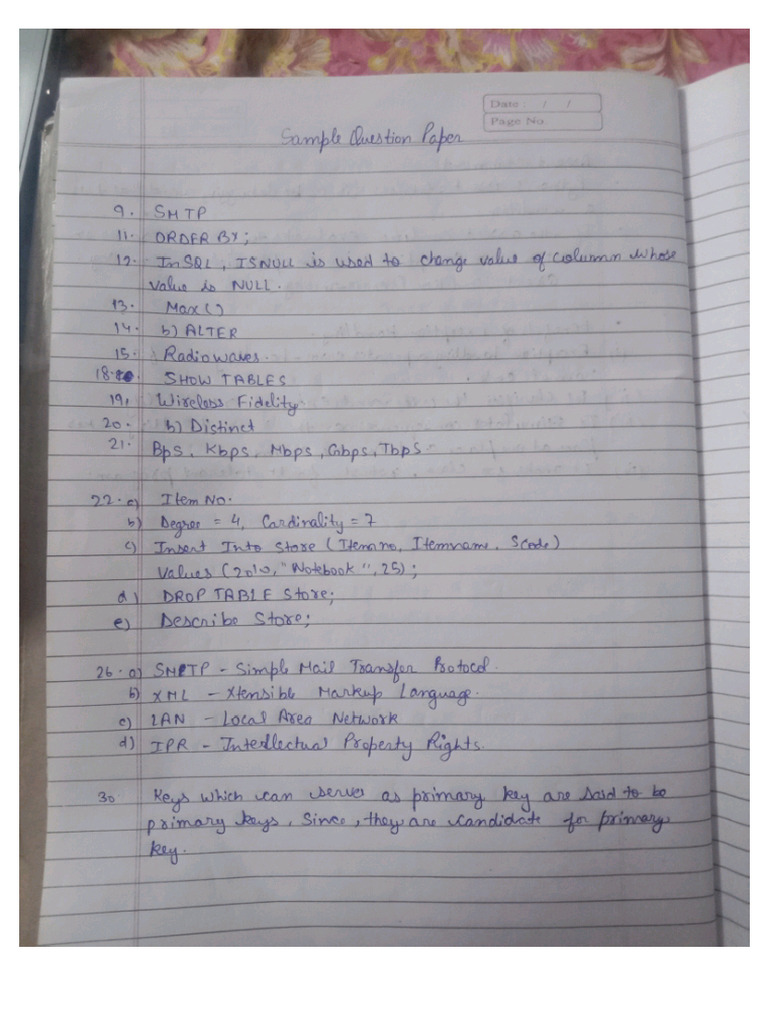 Date : / /
Page No.
Sample Question Paper
9. SMTP
11. ORDER BY;
12. In SQL, ISNULL is used to change value of column whose
value is NULL.
13. Max()
14. b) ALTER
15. Radiowaves.
18. SHOW TABLES
19. Wireless Fidelity.
20. b) Distinct
21. Bps, Kbps, Mbps, Gbps, Tbps
22. a) Item No.
b) Degree = 4, Cardinality = 7
c) Insert Into Store (Itemno, Itemname, Scode)
Values (2010, "Notebook", 25);
d) DROP TABLE Store;
e) Describe Store;
26. a) SMTP - Simple Mail Transfer Protocol.
b) XML - Xtensible Markup Language.
c) LAN - Local Area Network
d) IPR - Intellectual Property Rights.
30 Keys which can serve as primary key are said to be
primary keys, Since, they are candidate for primary
key.